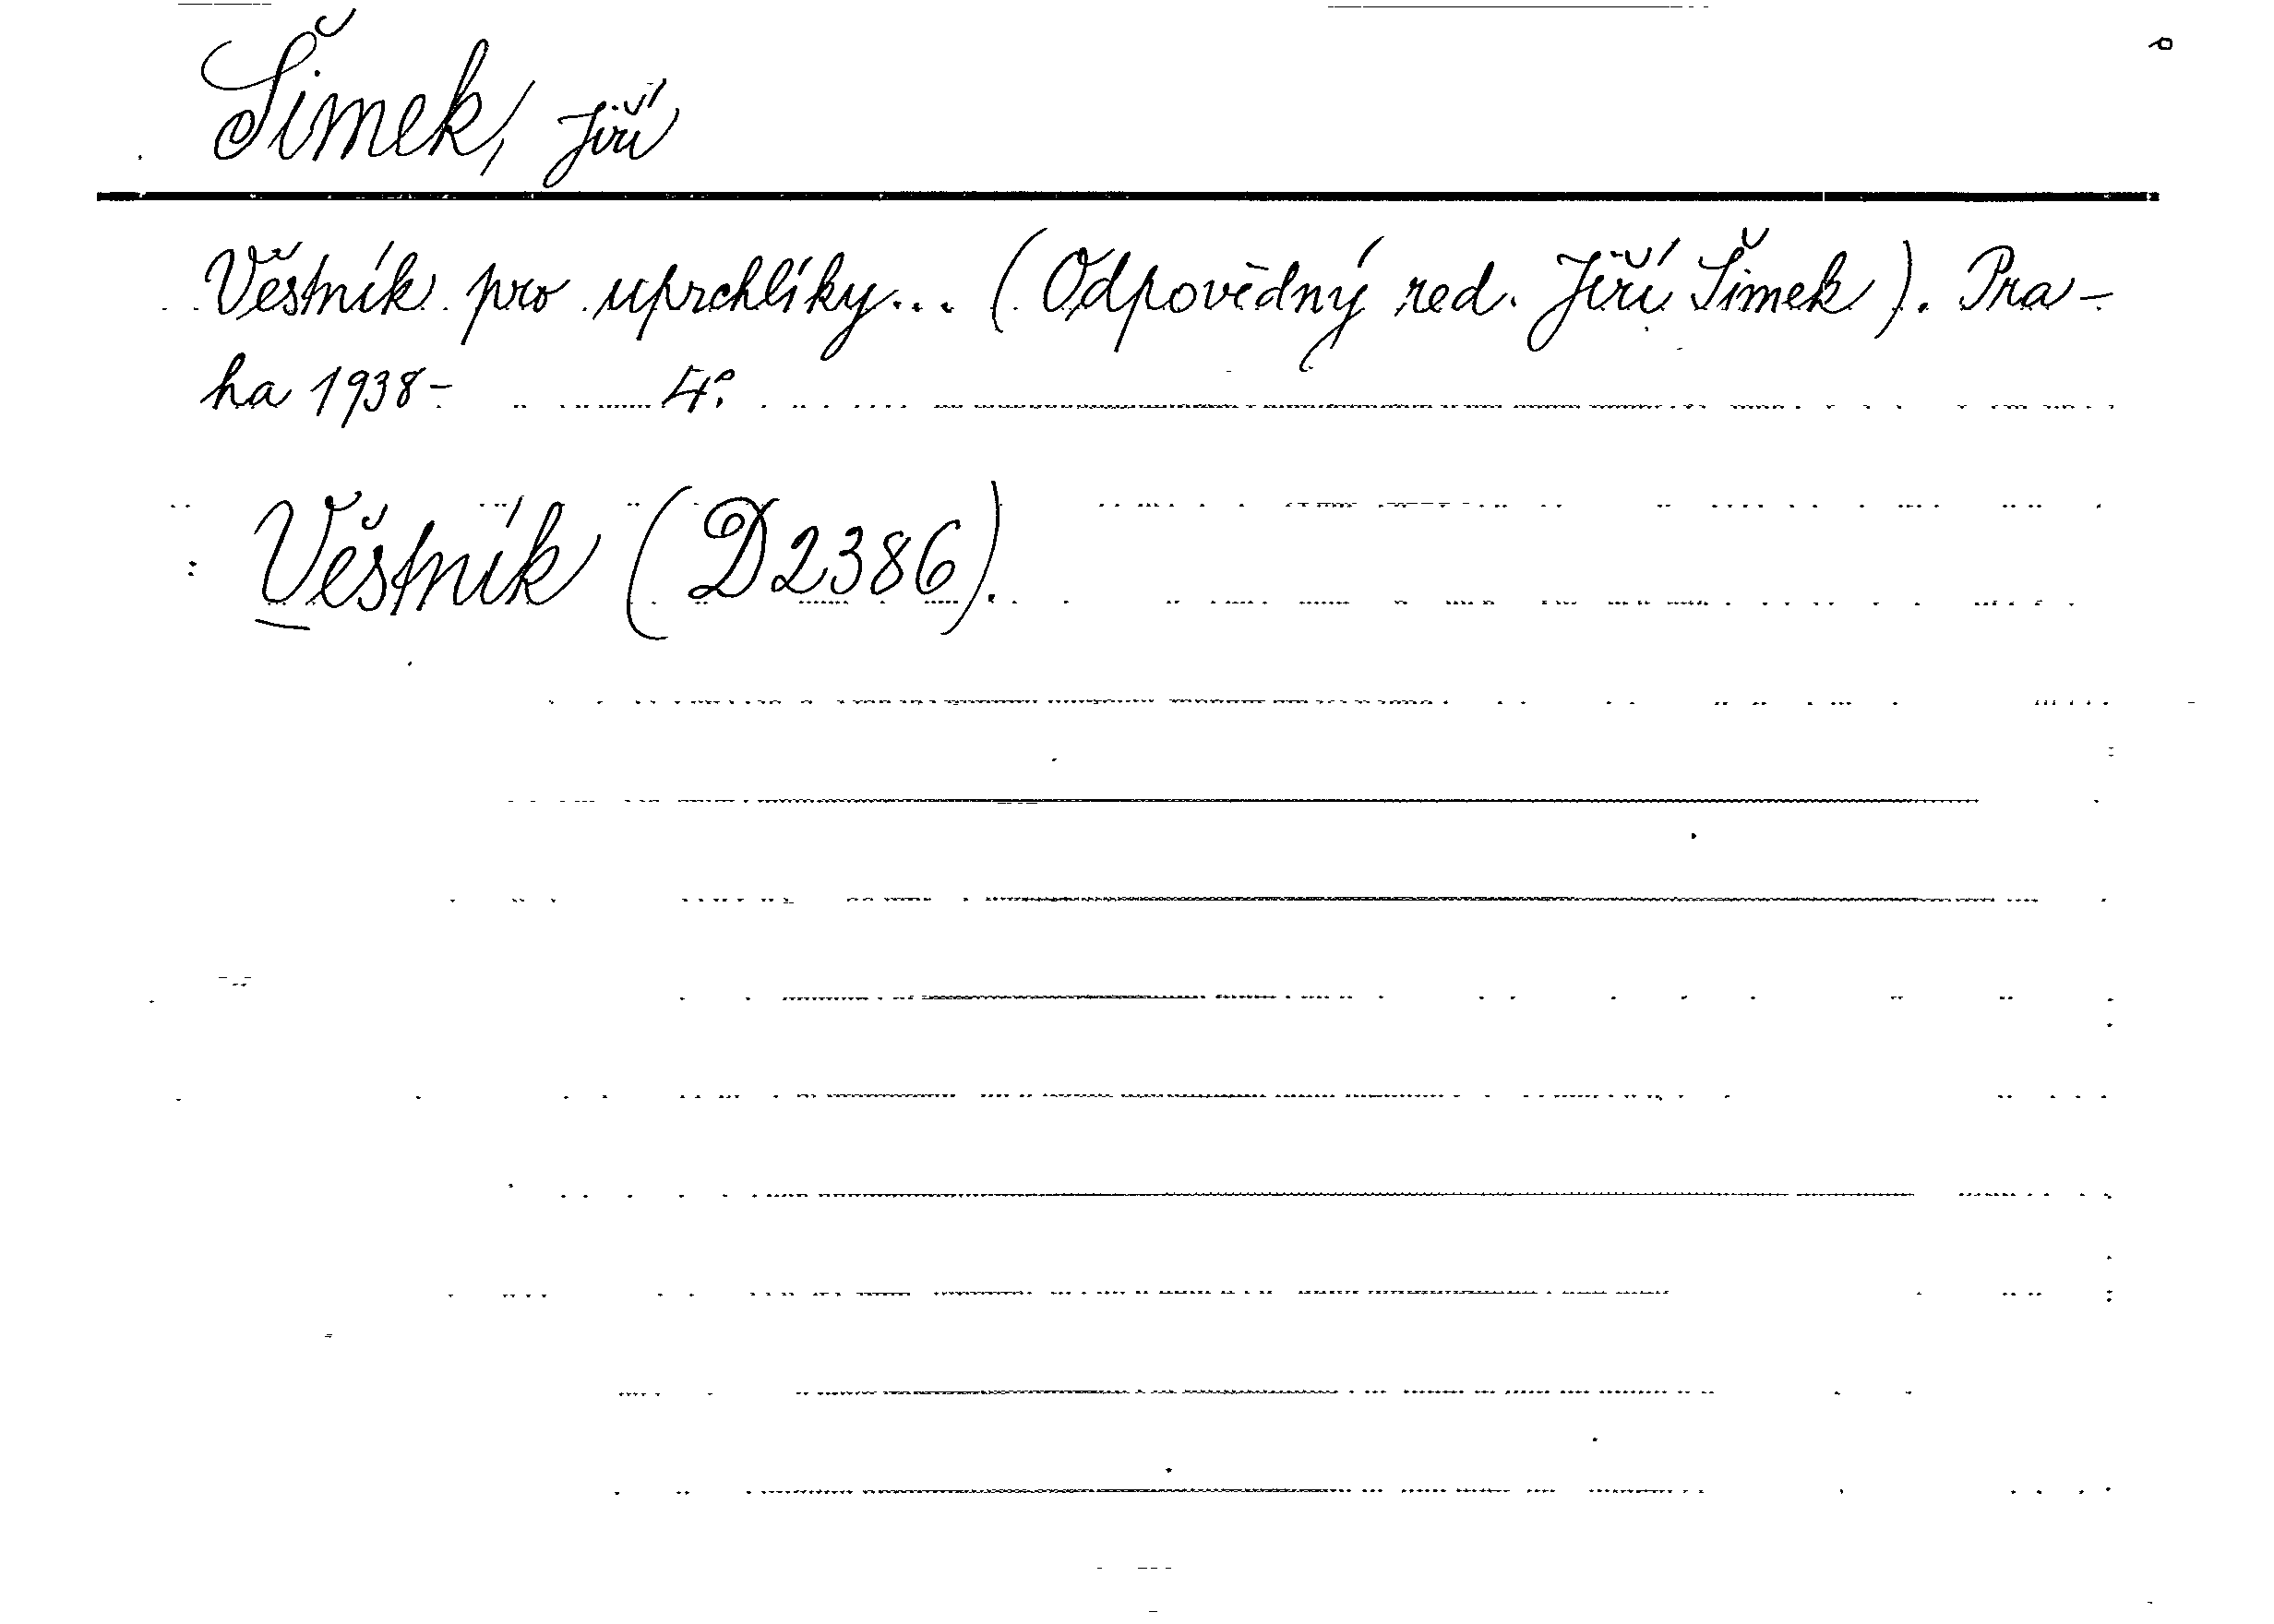 Šimek, Jiří
Věstník pro uprchlíky... (Odpovědný red. Jiří Šimek). Pra-
ha 1938- 4°.
Věstník (D2386).